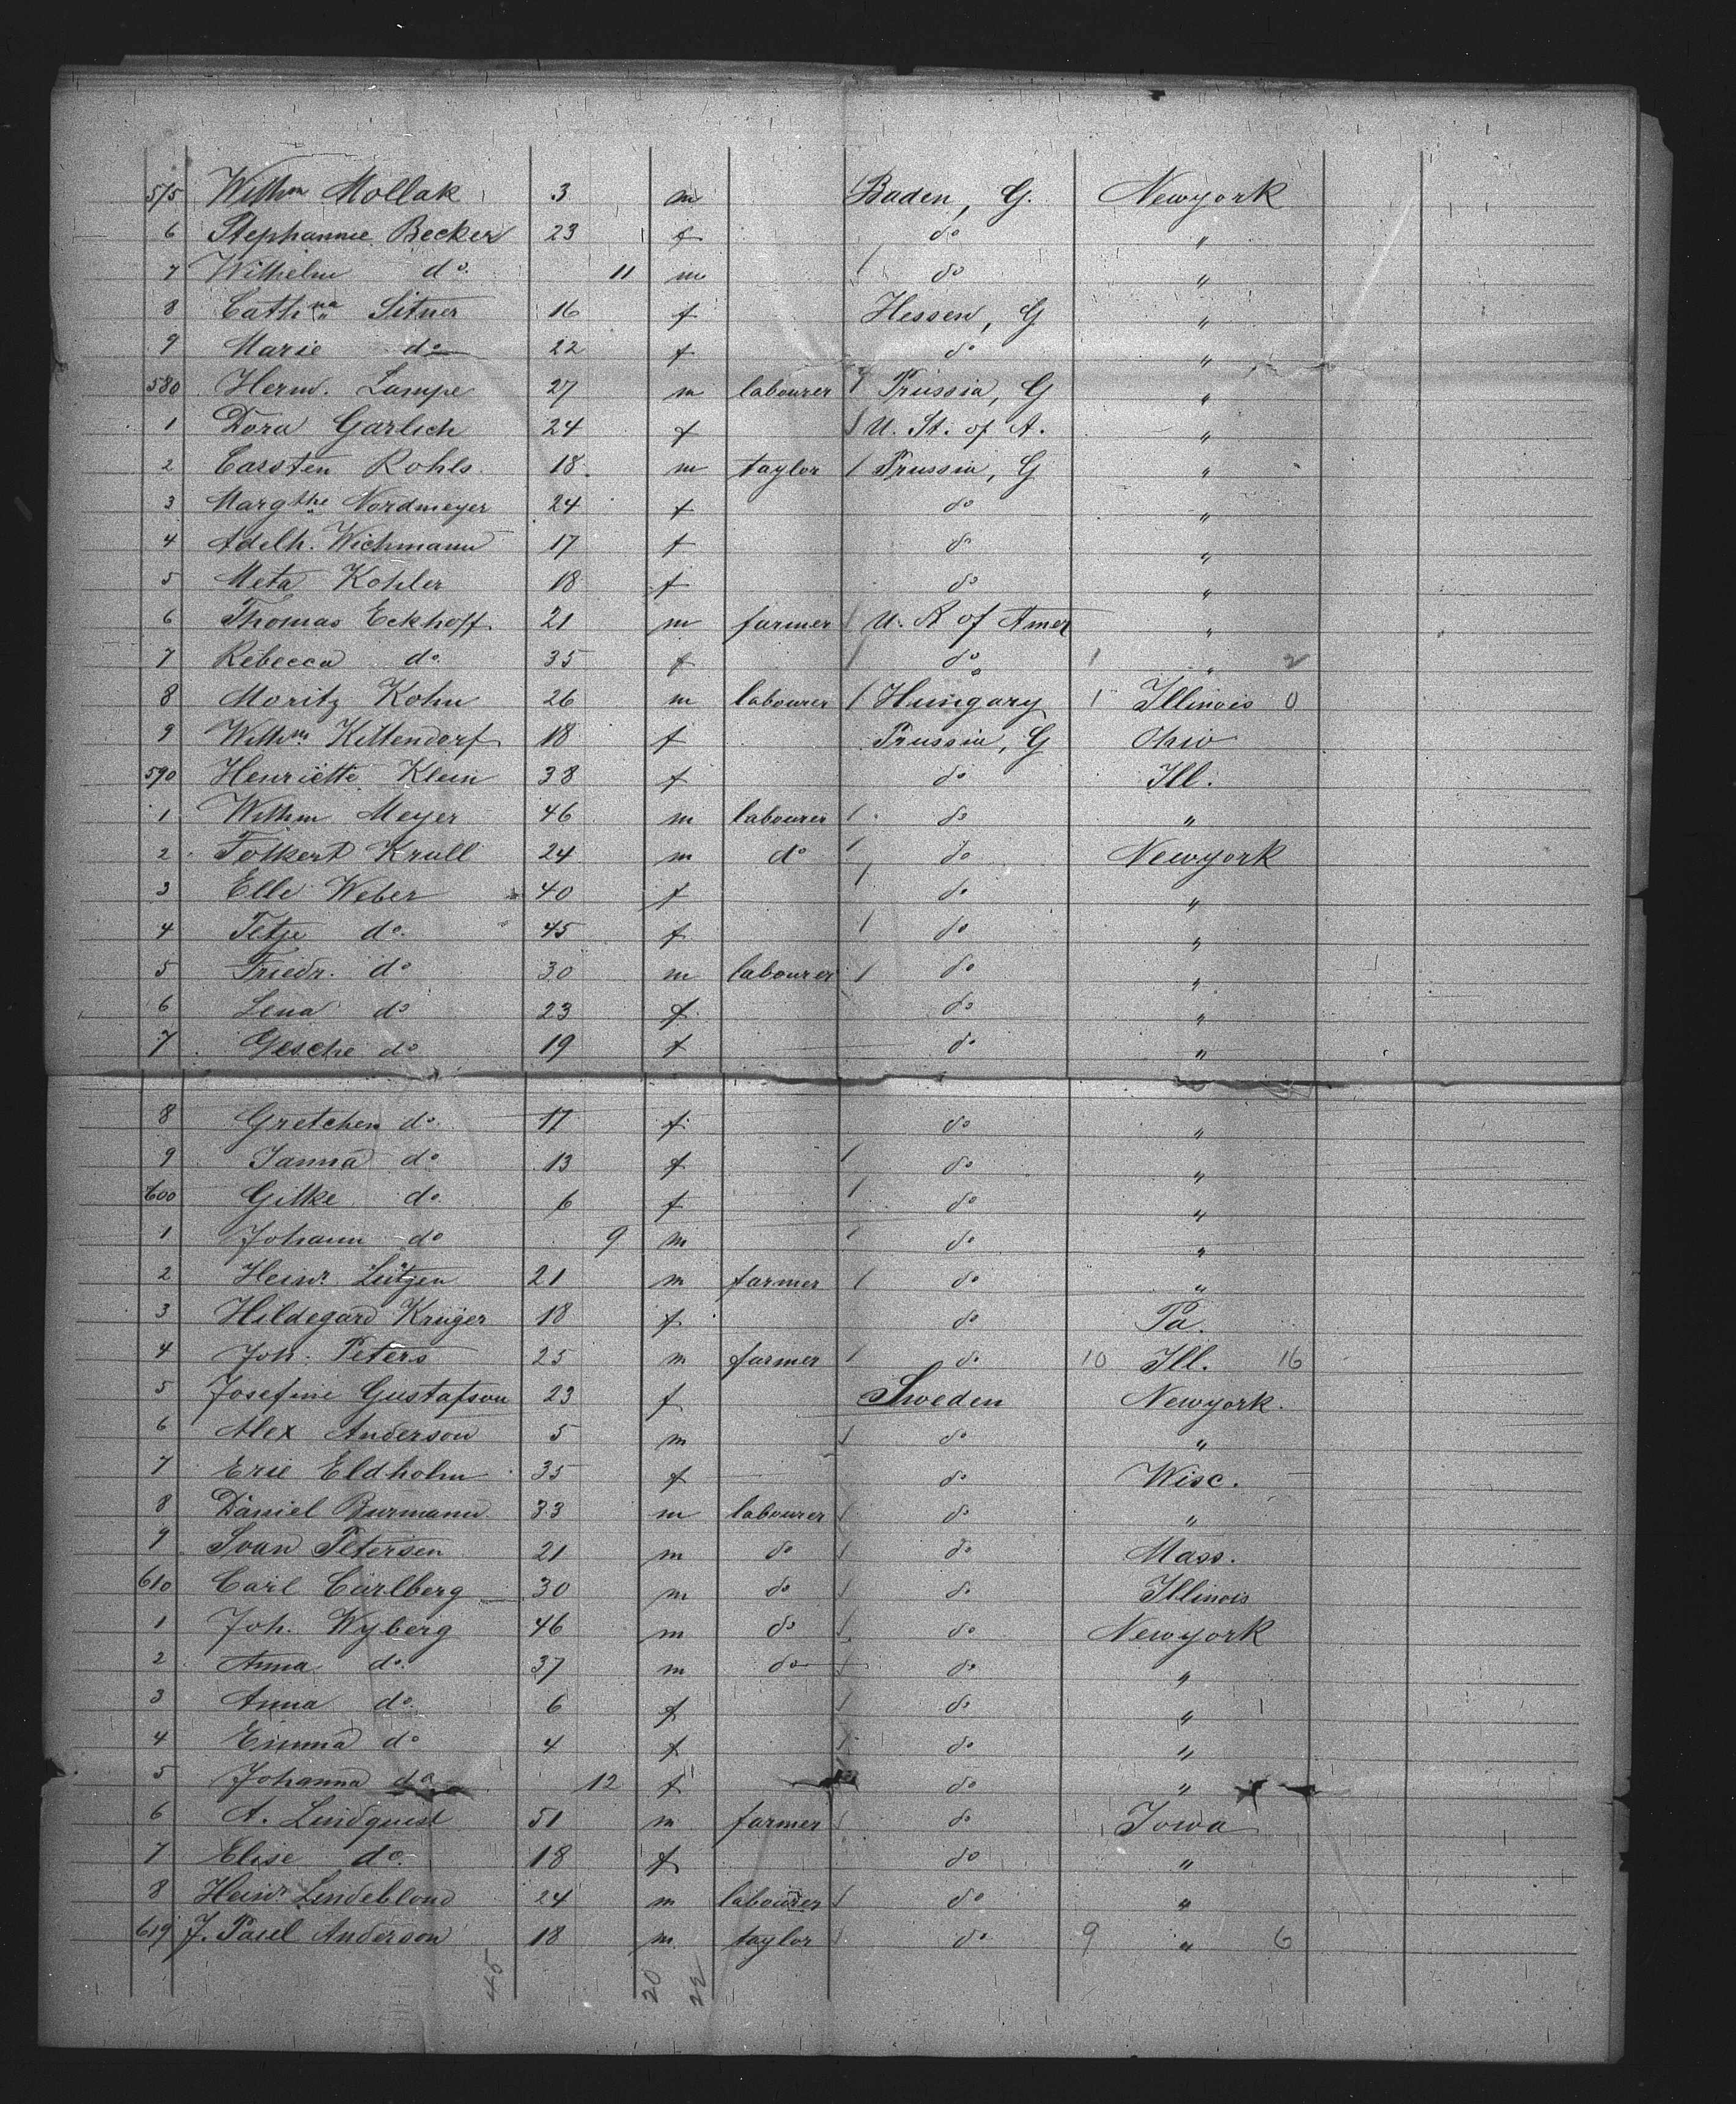 575 Wilhm Mollak 3 m Baden, G. Newyork
6 Stephannie Becker 23 f do "
7 Wilhelm do. 11 m do "
8 Cathna Sitner 16 f Hessen, G "
9 Marie do 22 f do "
580 Herm. Lampe 27 m labourer Prussia, G "
1 Dora Garlich 24 f U. St. of A. "
2 Carsten Rohls 18 m taylor Prussia, G "
3 Margthe Nordmeyer 24 f do "
4 Adelh. Wichmann 17 f do "
5 Meta Kohler 18 f do "
6 Thomas Eckhoff 21 m farmer U. St of Amer "
7 Rebecca do. 35 f do 1 " 2
8 Moritz Kohn 26 m labourer Hungary 1 Illinois 0
9 Wilhm. Kittendorf 18 f Prussia, G Ohio
590 Henriette Klein 38 f do Ill.
1 Wilhm Meyer 46 m labourer do "
2 Folkert Krull 24 m do do Newyork
3 Elle Weber 40 f do "
4 Tetje do. 45 f do "
5 Friedr. do 30 m labourer do "
6 Lena do 23 f do "
7 Gesche do 19 f do "
8 Gretchen do. 17 f do "
9 Janna do 13 f do "
600 Gitke do. 6 f do "
1 Johann do 9 m do "
2 Heinr. Lütjen 21 m farmer do "
3 Hildegard Krüger 18 f do Pa.
4 Joh. Peters 25 m farmer do 10 Ill. 16
5 Josefine Gustafson 23 f Sweden Newyork.
6 Alex Anderson 5 m do "
7 Erie Eldholm 35 f do Wisc.
8 Daniel Burmann 33 m labourer do "
9 Svan Petersen 21 m do do Mass.
610 Carl Carlberg 30 m do do Illinois
1 Joh. Wyberg 46 m do do Newyork
2 Anna do. 37 m do do "
3 Anna do. 6 f do "
4 Emma do 4 f do "
5 Johanna do 12 f do "
6 A. Lindquist 51 m farmer do Iowa
7 Elise do. 18 f do "
8 Heinr. Lindeblond 24 m labourer do "
619 J. Paul Anderson 18 m taylor do 9 " 6
45 20 22